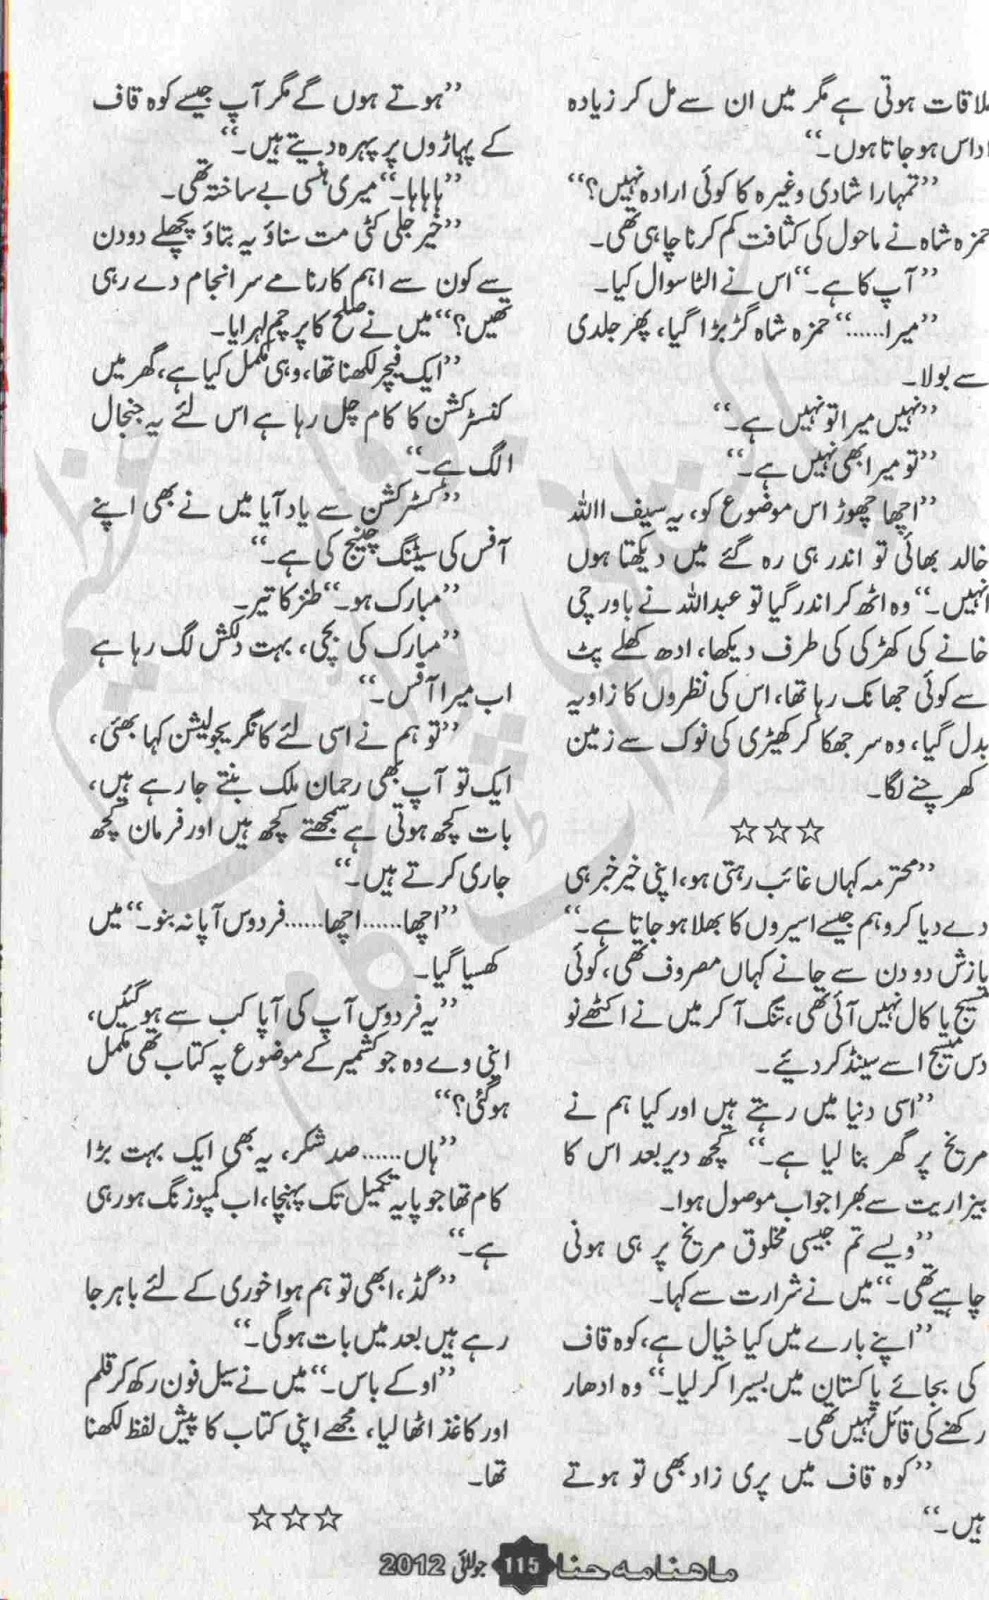 ملاقات ہوتی ہے مگر میں ان سے مل کر زیادہ
اداس ہو جاتا ہوں۔“
”تمہارا شادی وغیرہ کا کوئی ارادہ نہیں؟“
حمزہ شاہ نے ماحول کی کثافت کم کرنا چاہی تھی۔
”آپ کا ہے۔“ اس نے الٹا سوال کیا۔
”میرا......“ حمزہ شاہ گڑبڑا گیا، پھر جلدی
سے بولا۔
”نہیں میرا تو نہیں ہے۔“
”تو میرا بھی نہیں ہے۔“
”اچھا چھوڑ اس موضوع کو، یہ سیف اللہ
خالد بھائی تو اندر ہی رہ گئے میں دیکھتا ہوں
انہیں۔“ وہ اٹھ کر اندر گیا تو عبداللہ نے باورچی
خانے کی کھڑکی کی طرف دیکھا، ادھ کھلے پٹ
سے کوئی جھانک رہا تھا، اس کی نظروں کا زاویہ
بدل گیا، وہ سر جھکا کر کھیڑی کی نوک سے زمین
کھرچنے لگا۔
☆☆☆
”محترمہ کہاں غائب رہتی ہو، اپنی خیر خبر ہی
دے دیا کرو ہم جیسے اسیروں کا بھلا ہو جاتا ہے۔“
پازش دو دن سے جانے کہاں مصروف تھی، کوئی
میسج یا کال نہیں آئی تھی، تنگ آ کر میں نے اکٹھے نو
دس میسج اسے سینڈ کر دیئے۔
”اسی دنیا میں رہتے ہیں اور کیا ہم نے
مریخ پر گھر بنا لیا ہے۔“ کچھ دیر بعد اس کا
بیزاریت سے بھرا جواب موصول ہوا۔
”ویسے تم جیسی مخلوق مریخ پر ہی ہونی
چاہیے تھی۔“ میں نے شرارت سے کہا۔
”اپنے بارے میں کیا خیال ہے، کوہ قاف
کی بجائے پاکستان میں بسیرا کر لیا۔“ وہ ادھار
رکھنے کی قائل نہیں تھی۔
”کوہ قاف میں پری زاد بھی تو ہوتے
ہیں۔“
”ہوتے ہوں گے مگر آپ جیسے کوہ قاف
کے پہاڑوں پر پہرہ دیتے ہیں۔“
”ہاہاہا۔“ میری ہنسی بے ساختہ تھی۔
”خیر جلی کٹی مت سناؤ یہ بتاؤ پچھلے دو دن
سے کون سے اہم کارنامے سر انجام دے رہی
تھیں؟“ میں نے صلح کا پرچم لہرایا۔
”ایک فیچر لکھنا تھا، وہی مکمل کیا ہے، گھر میں
کنسٹرکشن کا کام چل رہا ہے اس لئے یہ جنجال
الگ ہے۔“
”کسٹرکشن سے یاد آیا میں نے بھی اپنے
آفس کی سیٹنگ چینج کی ہے۔“
”مبارک ہو۔“ طنز کا تیر۔
”مبارک کی بچی، بہت دلکش لگ رہا ہے
اب میرا آفس۔“
”تو ہم نے اسی لئے کانگریجولیشن کہا بھئی،
ایک تو آپ بھی رحمان ملک بنتے جا رہے ہیں،
بات کچھ ہوتی ہے سمجھتے کچھ ہیں اور فرمان کچھ
جاری کرتے ہیں۔“
”اچھا......اچھا......فردوس آپا نہ بنو۔“ میں
کھسیا گیا۔
”یہ فردوس آپ کی آپا کب سے ہو گئیں،
اینی وے وہ جو کشمیر کے موضوع پہ کتاب تھی مکمل
ہو گئی؟“
”ہاں......صد شکر، یہ بھی ایک بہت بڑا
کام تھا جو پایہ تکمیل تک پہنچا، اب کمپوزنگ ہو رہی
ہے۔“
”گڈ، ابھی تو ہم ہوا خوری کے لئے باہر جا
رہے ہیں بعد میں بات ہو گی۔“
”اوکے باس۔“ میں نے سیل فون رکھ کر قلم
اور کاغذ اٹھا لیا، مجھے اپنی کتاب کا پیش لفظ لکھنا
تھا۔
☆☆☆
ماہنامہ حنا 115 جولائی 2012